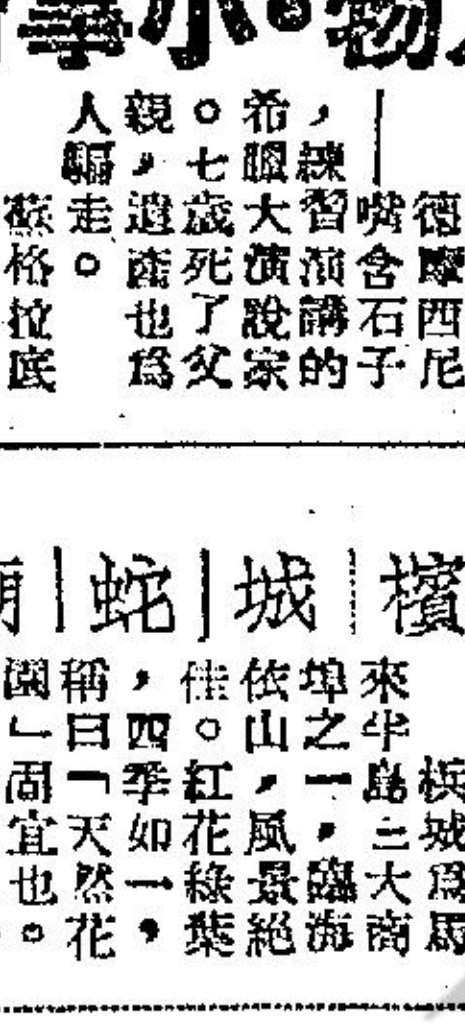 物。小
德摩西尼
—嘴含石子
，練習演講的
希臘大演說家
。七歲死了父
親，遺產也為
人騙走。
蘇格拉底
檳|城|蛇|
梹城為馬
來半島三大商
埠之一，臨海
依山，風景絕
佳。紅花綠葉
，四季如一，
稱曰「天然花
園」固宜也。